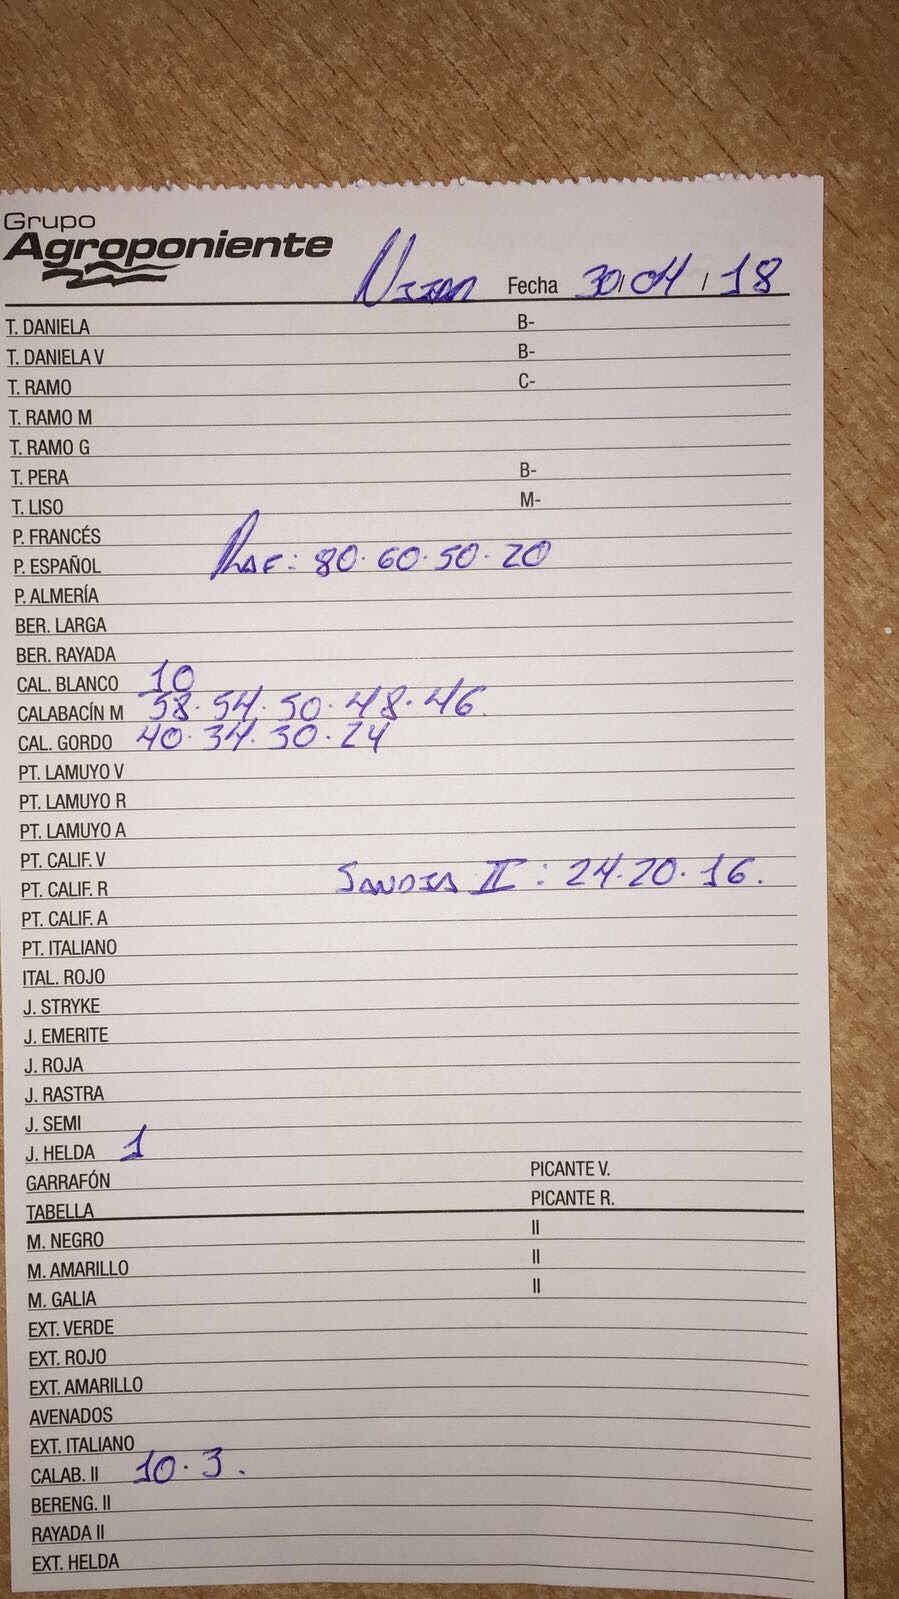 Grupo
Agroponiente
Fecha 30/04/18
T. DANIELA B-
T. DANIELA V B-
T. RAMO C-
T. RAMO M
T. RAMO G
T. PERA B-
T. LISO M-
P. FRANCÉS
P. ESPAÑOL RAF: 80.60.50.20
P. ALMERÍA
BER. LARGA
BER. RAYADA
CAL. BLANCO 10
CALABACÍN M 58.54.50.48.46.
CAL. GORDO 40.34.30.24
PT. LAMUYO V
PT. LAMUYO R
PT. LAMUYO A
PT. CALIF. V
PT. CALIF. R SANDIA II: 24.20.16.
PT. CALIF. A
PT. ITALIANO
ITAL. ROJO
J. STRYKE
J. EMERITE
J. ROJA
J. RASTRA
J. SEMI
J. HELDA 1
GARRAFÓN PICANTE V.
TABELLA PICANTE R.
M. NEGRO II
M. AMARILLO II
M. GALIA II
EXT. VERDE
EXT. ROJO
EXT. AMARILLO
AVENADOS
EXT. ITALIANO
CALAB. II 10.3.
BERENG. II
RAYADA II
EXT. HELDA